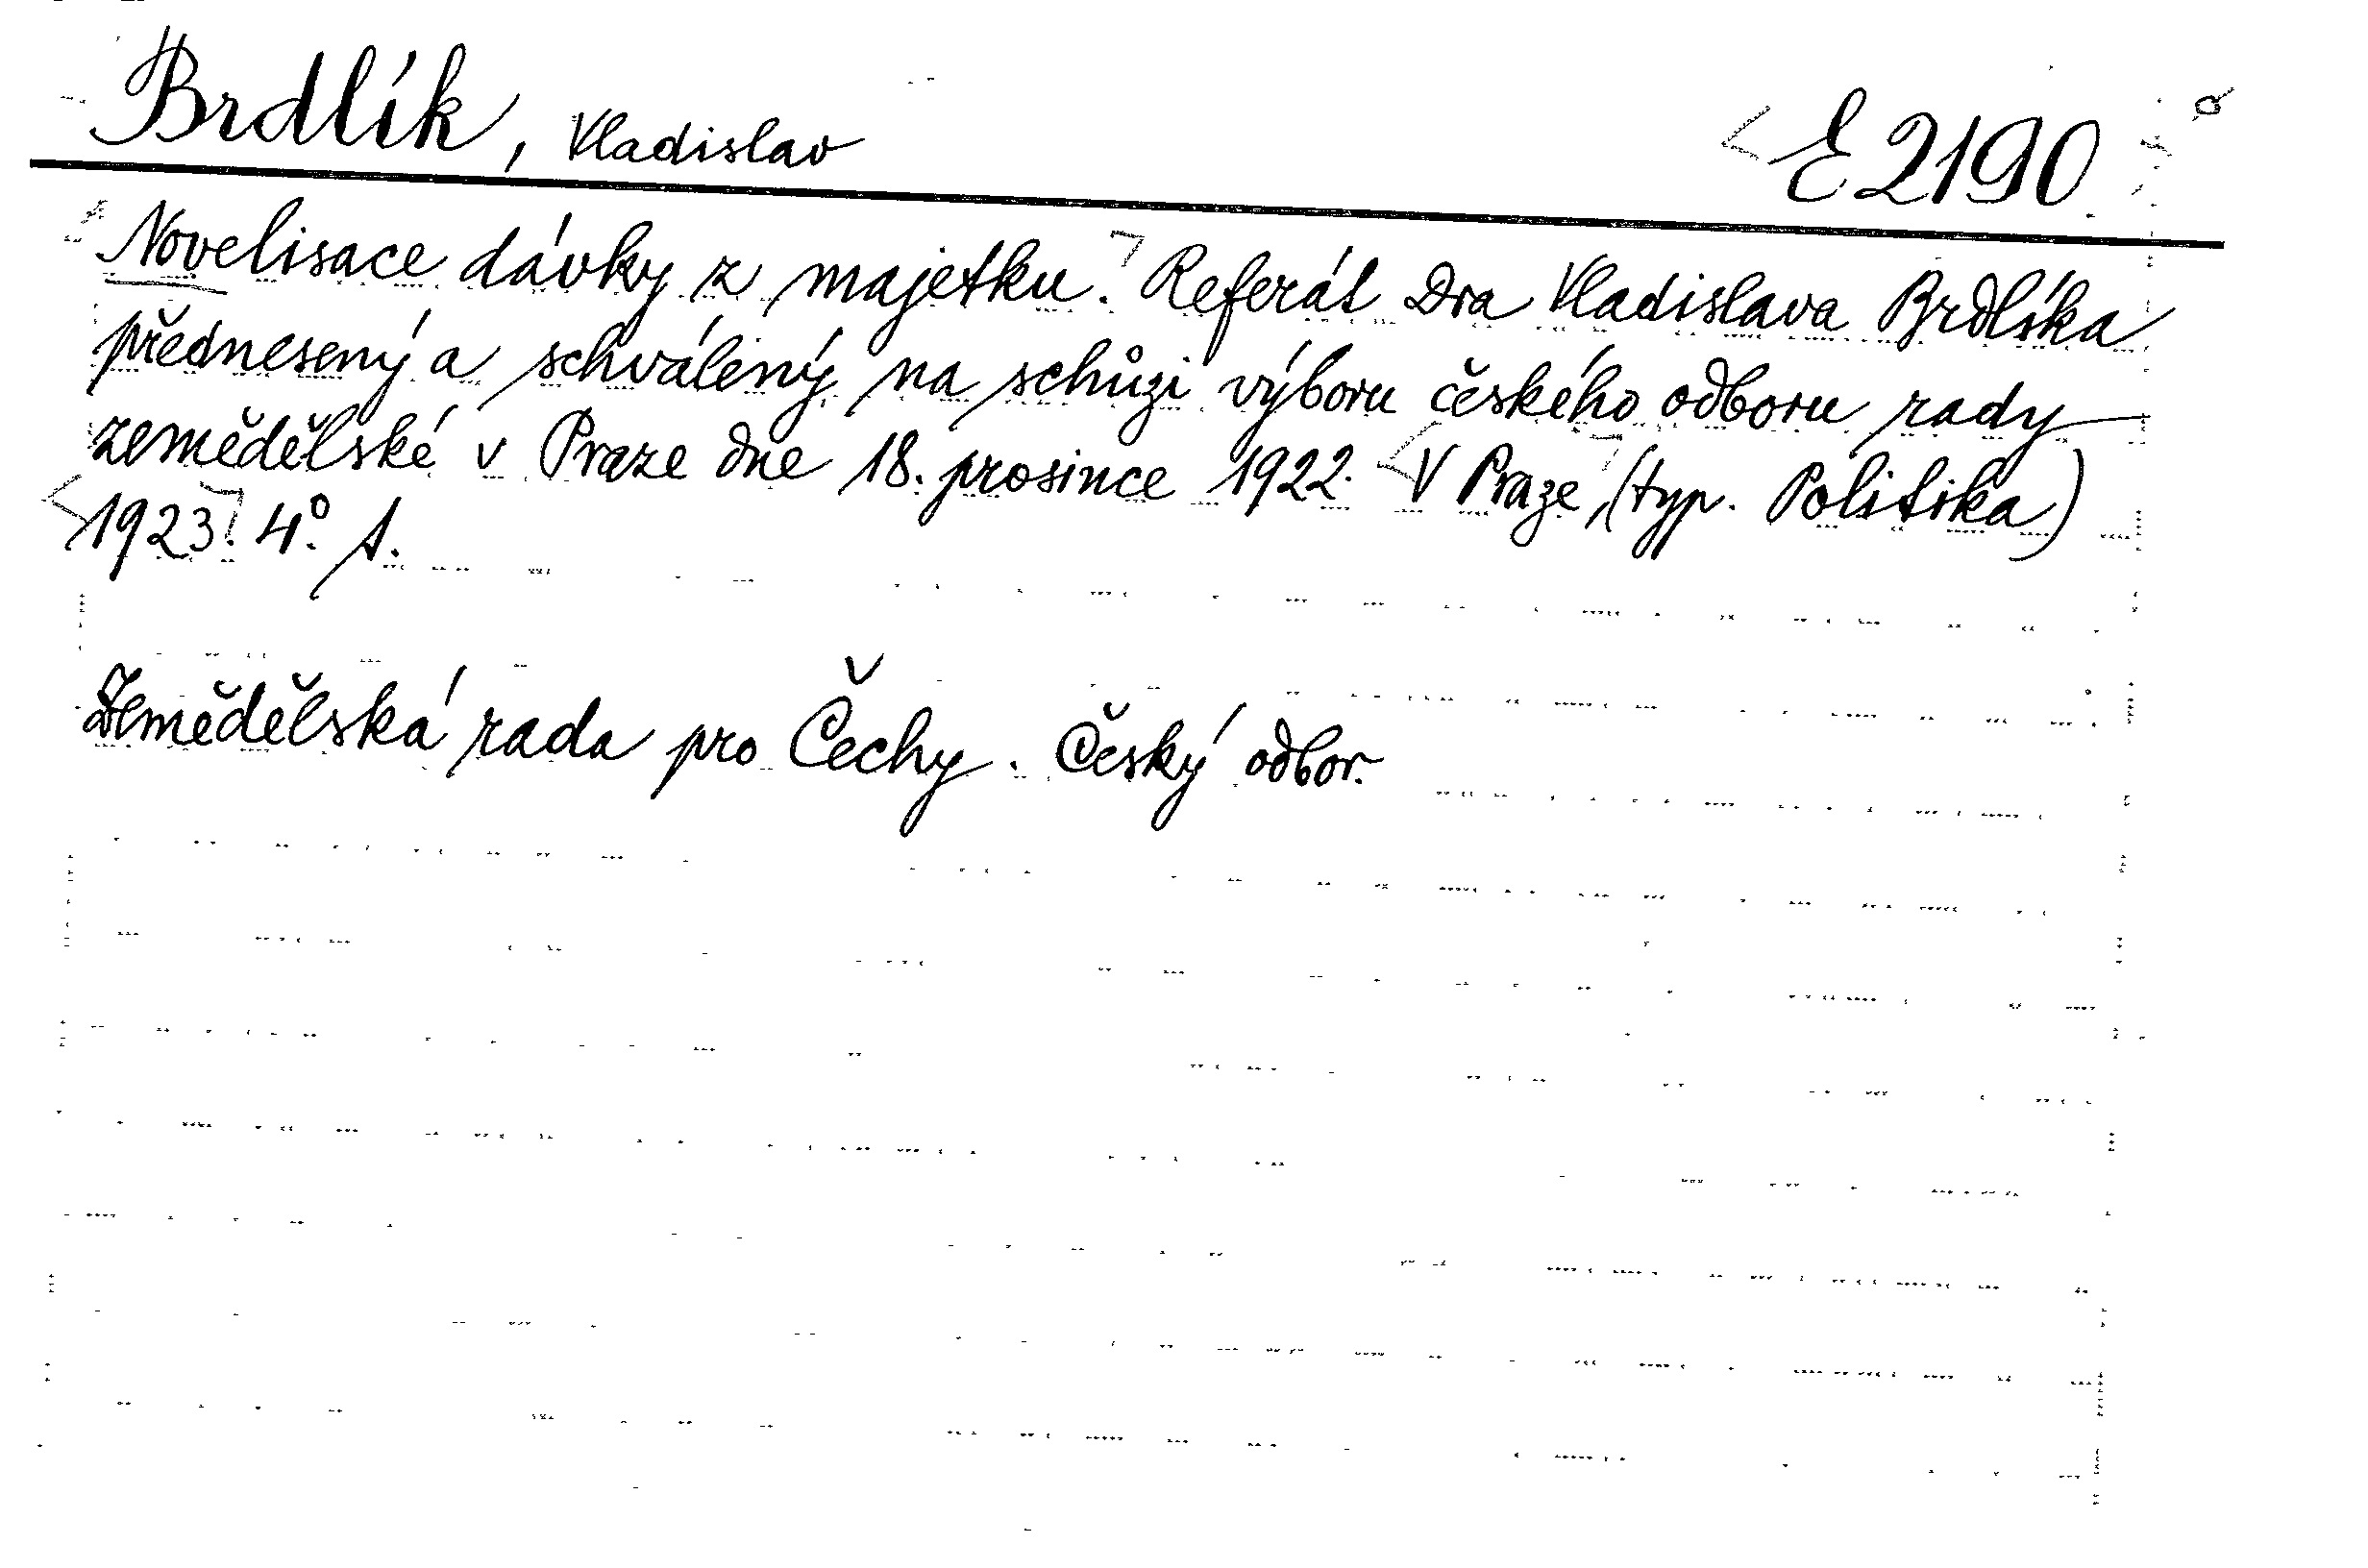 Brdlík, Vladislav E 2190
Novelisace dávky z majetku. Referát Dra Vladislava Brdlíka
přednesený a schválený na schůzi výboru českého odboru rady
zemědělské v Praze dne 18. prosince 1922. V Praze, (typ. Politika)
1923. 4°.
Zemědělská rada pro Čechy. Český odbor.